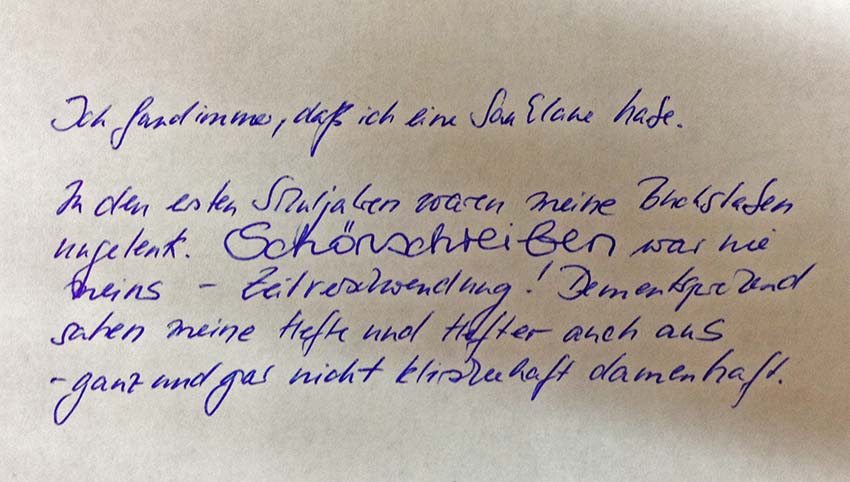 Ich fand immer, daß ich eine Sauklaue habe.
In den ersten Schuljahren waren meine Buchstaben
ungelenk. Schönschreiben war nie
meins – Zeitverschwendung! Dementsprechend
sahen meine Hefte und Hefter auch aus
– ganz und gar nicht klischeehaft damenhaft.